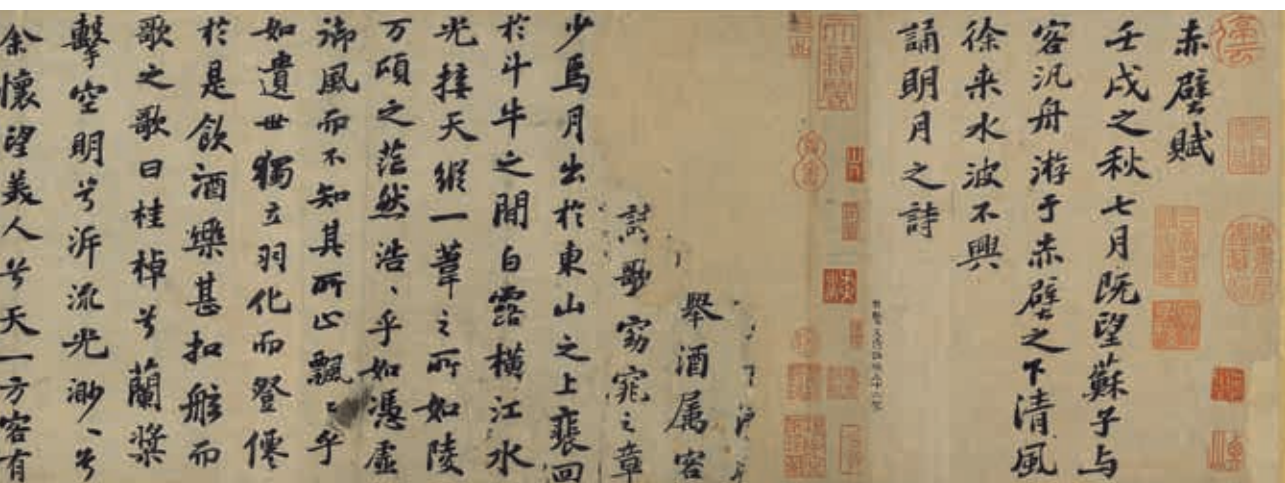 赤壁賦
壬戌之秋七月既望蘇子与
客汎舟游于赤壁之下清風
徐来水波不興
誦明月之詩
舉酒属客
歌窈窕之章
少焉月出於東山之上裴回
於斗牛之間白露横江水
光接天縱一葦之所如陵
万頃之茫然浩、乎如憑虚
御風而不知其所止飄、乎
如遺世獨立羽化而登僊
於是飲酒樂甚扣舷而
歌之歌曰桂棹兮蘭槳
擊空明兮泝流光渺、兮
余懷望美人兮天一方客有